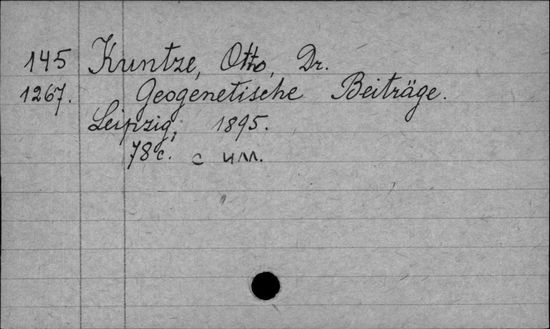 145 Kuntze, Otto, Dr.
1267. Geogenetische Beiträge.
Leipzig, 1895.
78 с. с илл.